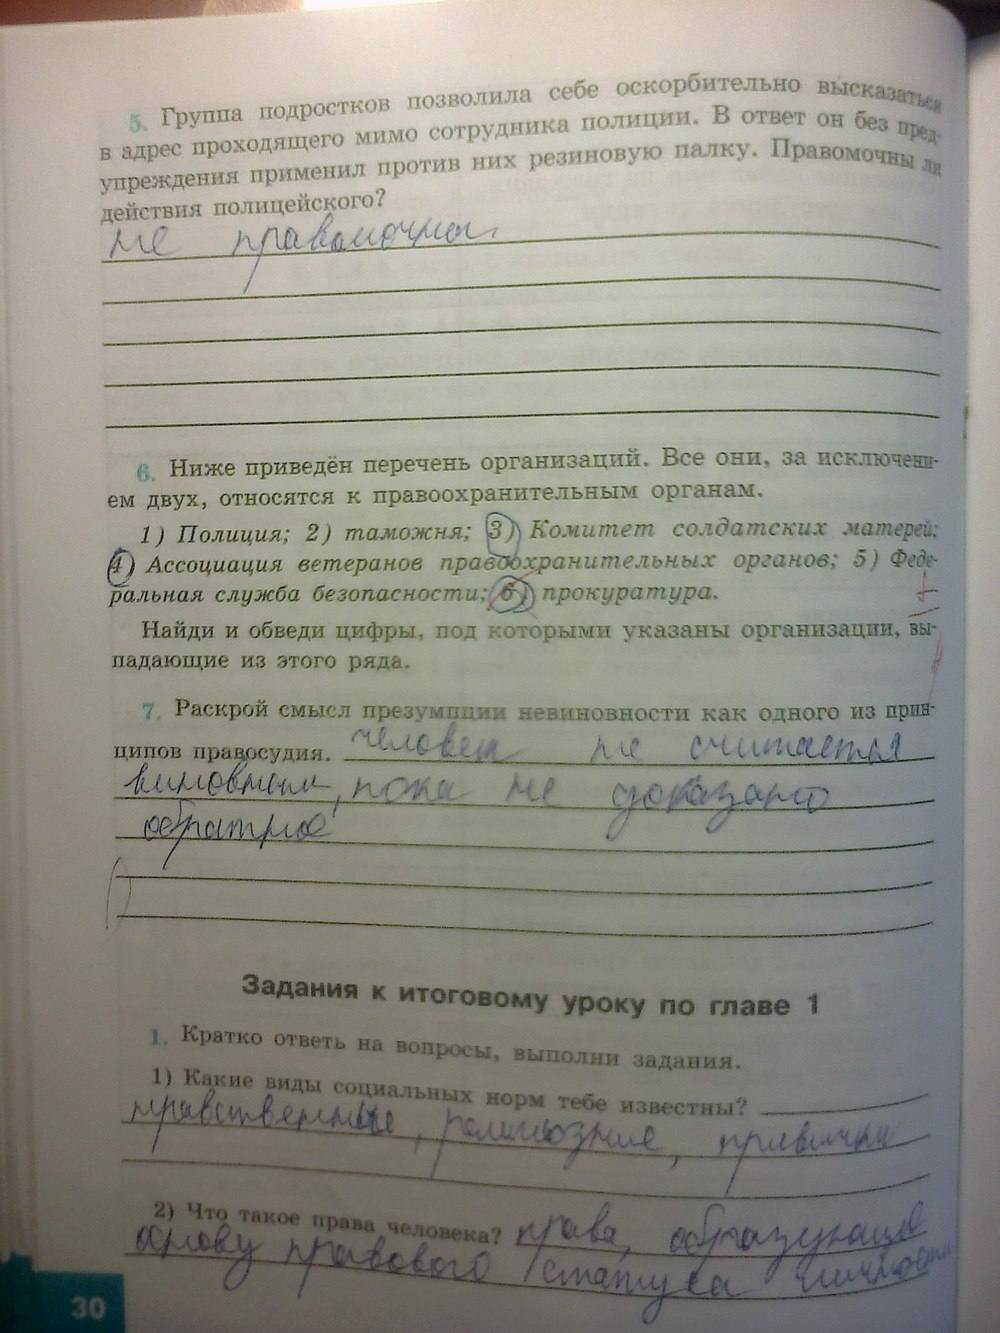 5. Группа подростков позволила себе оскорбительно высказаться
в адрес проходящего мимо сотрудника полиции. В ответ он без пред-
упреждения применил против них резиновую палку. Правомочны ли
действия полицейского?
не правомочны.
6. Ниже приведён перечень организаций. Все они, за исключени-
ем двух, относятся к правоохранительным органам.
1) Полиция; 2) таможня; 3) Комитет солдатских матерей;
4) Ассоциация ветеранов правоохранительных органов; 5) Феде-
ральная служба безопасности; 6) прокуратура.
Найди и обведи цифры, под которыми указаны организации, вы-
падающие из этого ряда.
7. Раскрой смысл презумпции невиновности как одного из прин-
ципов правосудия. человек не считается
виновным, пока не доказано
обратное
Задания к итоговому уроку по главе 1
1. Кратко ответь на вопросы, выполни задания.
1) Какие виды социальных норм тебе известны?
нравственные, религиозные, привычки
2) Что такое права человека? права, образующие
основу правового статуса личности
30